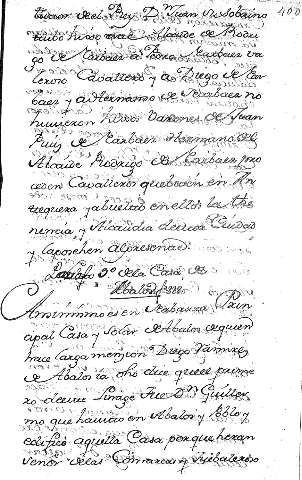 400
favor del Rey Dn Juan su sobrino
tubo hijos a el Alcaide Rodri
go de Narbaez a Pedro Narbaez va
leroso Cavallero y a Diego de Nar
baez y a Hernando de Narbaez no
huvieron hijos varones de Juan
Ruiz de Narbaez Hermano del
Alcaide Rodrigo de Narbaez pro
ceden Cavalleros que bicien en An
tequera y abuelad en ellos la the
nencia y Alcaidia de esta Ciudad
y la posehen al presente
de la Casa de
Abalos
Ansi mismo es en Navarra Prin
cipal Casa y Solar de Abalos de quien
hace larga mension Diego Ramirez
de Abalos la otho dice que el prime
ro de este Linage fue Dn Guiller
mo que havitio en Abalos y Poblo y
edifico aquella Casa porque heran
Señor de las Comarcas y